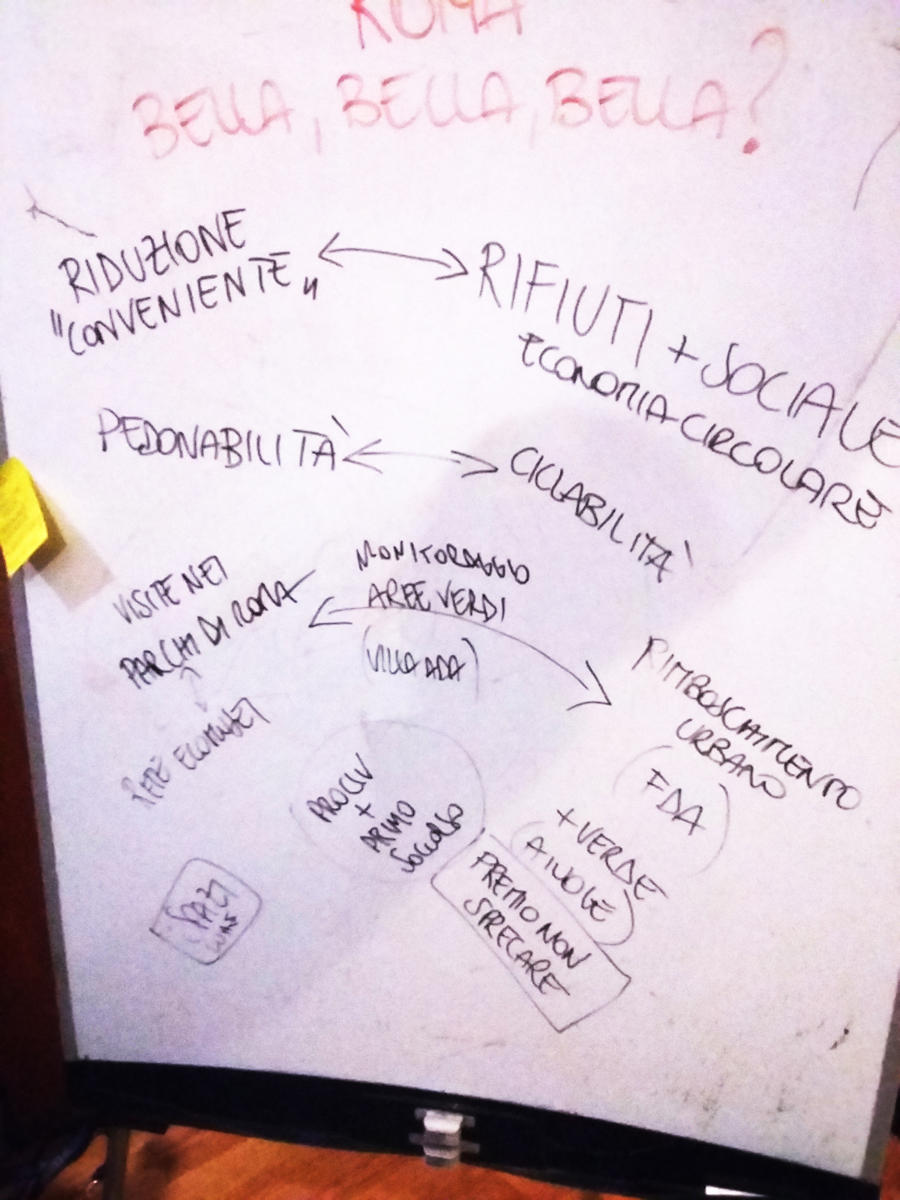 ROMA
BELLA, BELLA, BELLA?
RIDUZIONE
"CONVENIENTE"
RIFIUTI + SOCIALE
ECONOMIA CIRCOLARE
PEDONABILITÀ
CICLABILITÀ
VISITE NEI
PARCHI DI ROMA
MONITORAGGIO
AREE VERDI
(VILLA ADA)
RIMBOSCHIMENTO
URBANO
RETE ECOMUSEI
FDA
PROCIV
+
PRIMO
SOCCORSO
+ VERDE
AIUOLE
PREMIO NON
SPRECARE
SPAZI